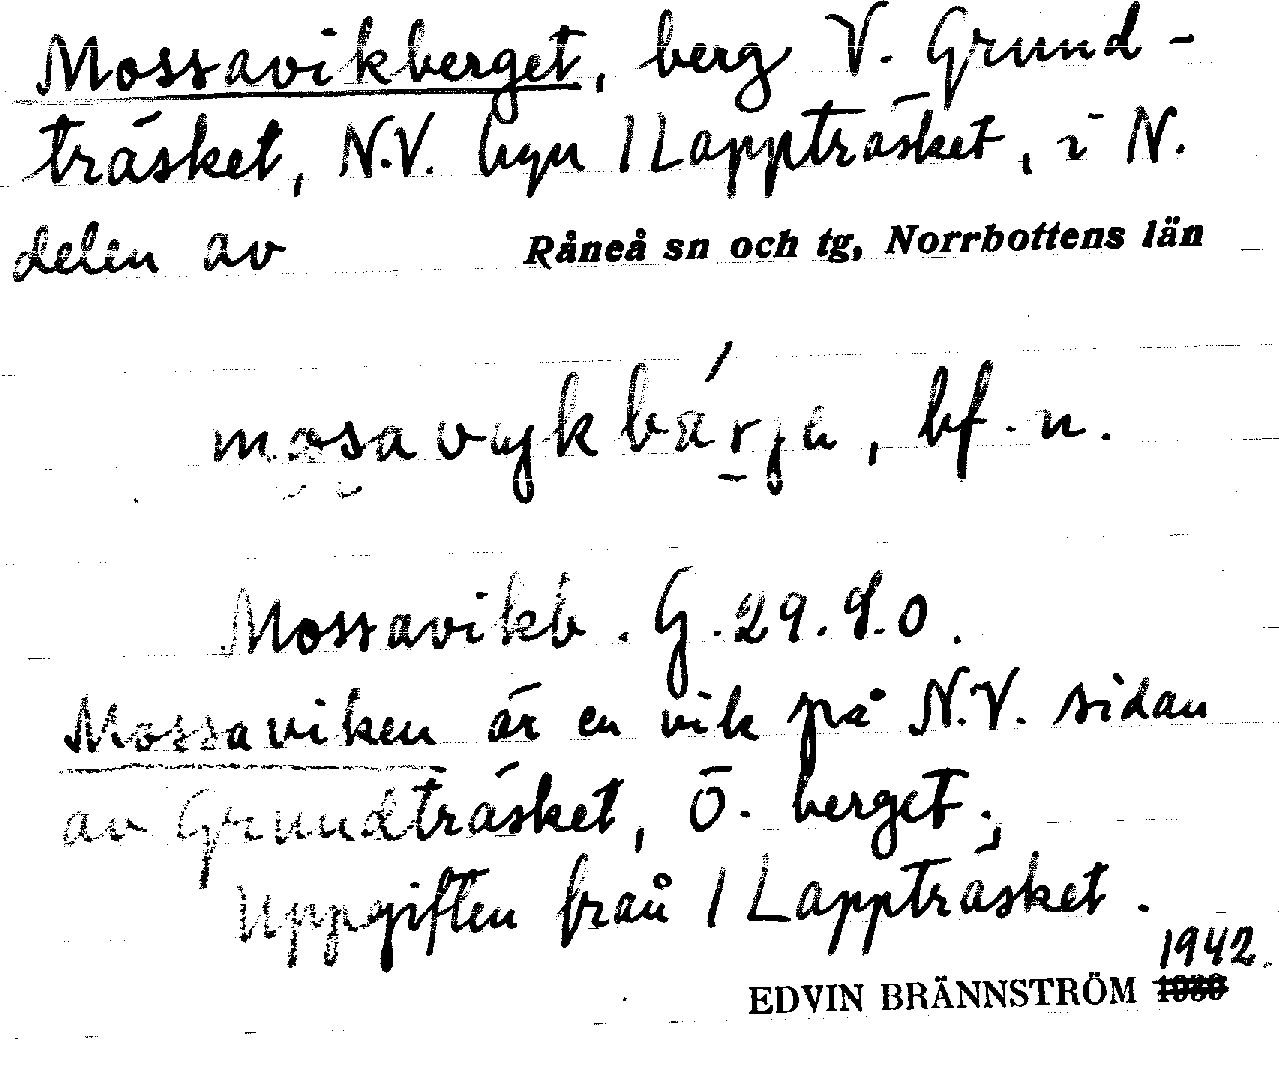 Mossavikberget, berg V. Grund-
träsket, N.V. byn 1 Lappträsket, i N.
delen av Råneå sn och tg, Norrbottens län
bf. n.
Mossavikb. G. 29. d. 0.
Mossaviken är en vik på N.V. sidan
av Grundträsket, Ö. berget.,
Uppgiften från 1 Lappträsket.
1942.
EDVIN BRÄNNSTRÖM 1930